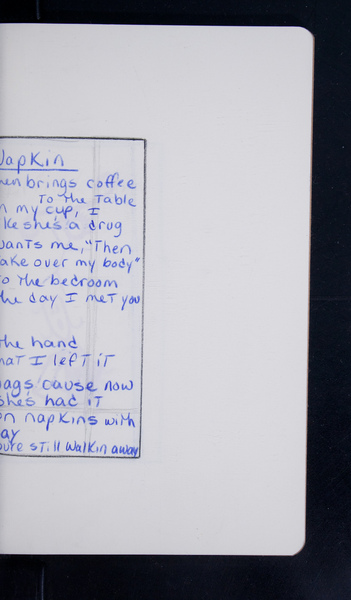 Napkin
hen brings coffee
To The Table
n my cup, I
ke she's a drug
wants me, "Then
ake over my body"
o The bedroom
the day I met you
the hand
hat I left it
bags cause now
she's had it
on napkins with
ay
oure still walkin away